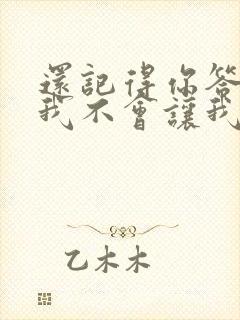 還記得你答
我不會讓我
乙木木